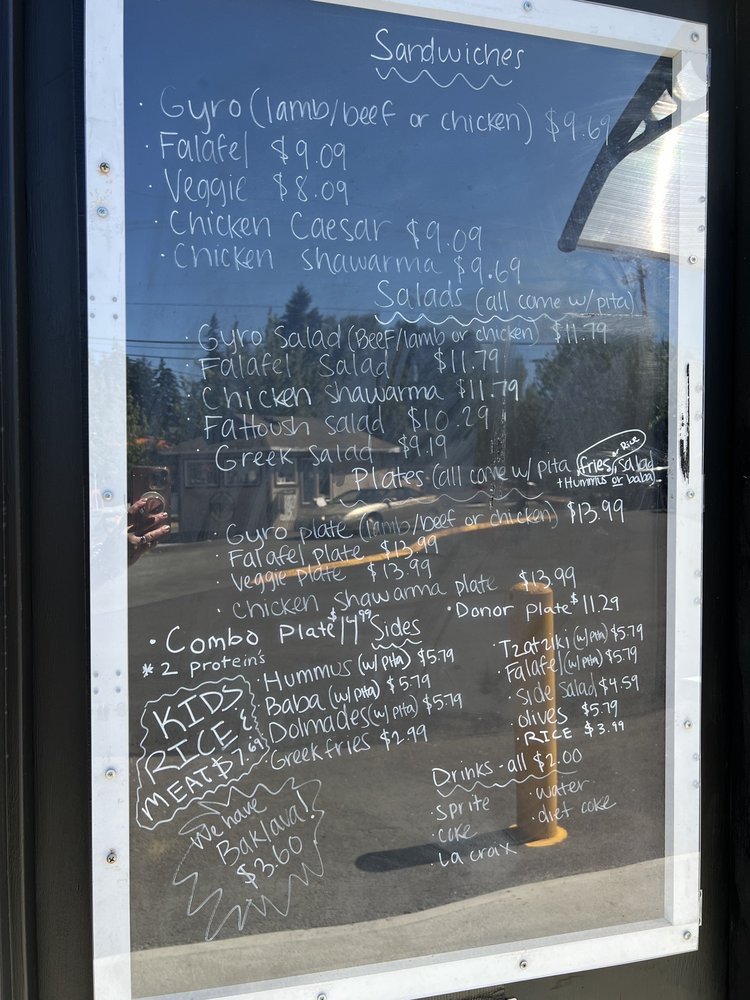 Sandwiches
· Gyro (lamb/beef or chicken) $9.69
· Falafel $9.09
· Veggie $8.09
· Chicken Caesar $9.09
· Chicken shawarma $9.69
Salads (all come w/pita)
· Gyro Salad (Beef/lamb or chicken) $11.79
· Falafel Salad $11.79
· Chicken shawarma $11.79
· Fattoush salad $10.29
· Greek salad $9.19
Plates (all come w/ pita, fries, salad
or Rice
+Hummus or baba)
· Gyro plate (lamb/beef or chicken) $13.99
· Falafel plate $13.99
· Veggie plate $13.99
· chicken shawarma plate $13.99
· Combo Plate $14.99
* 2 protein's
· Donor plate $11.29
Sides
· Hummus (w/pita) $5.79
· Baba (w/pita) $5.79
· Dolmades (w/pita) $5.79
· Greek fries $2.99
· Tzatziki (w/pita) $5.79
· Falafel (w/pita) $5.79
· side salad $4.59
· olives $5.79
· RICE $3.99
KIDS
RICE &
MEAT $7.69
We have
Baklava!
$3.60
Drinks - all $2.00
· sprite
· coke
· La croix
· water
· diet coke